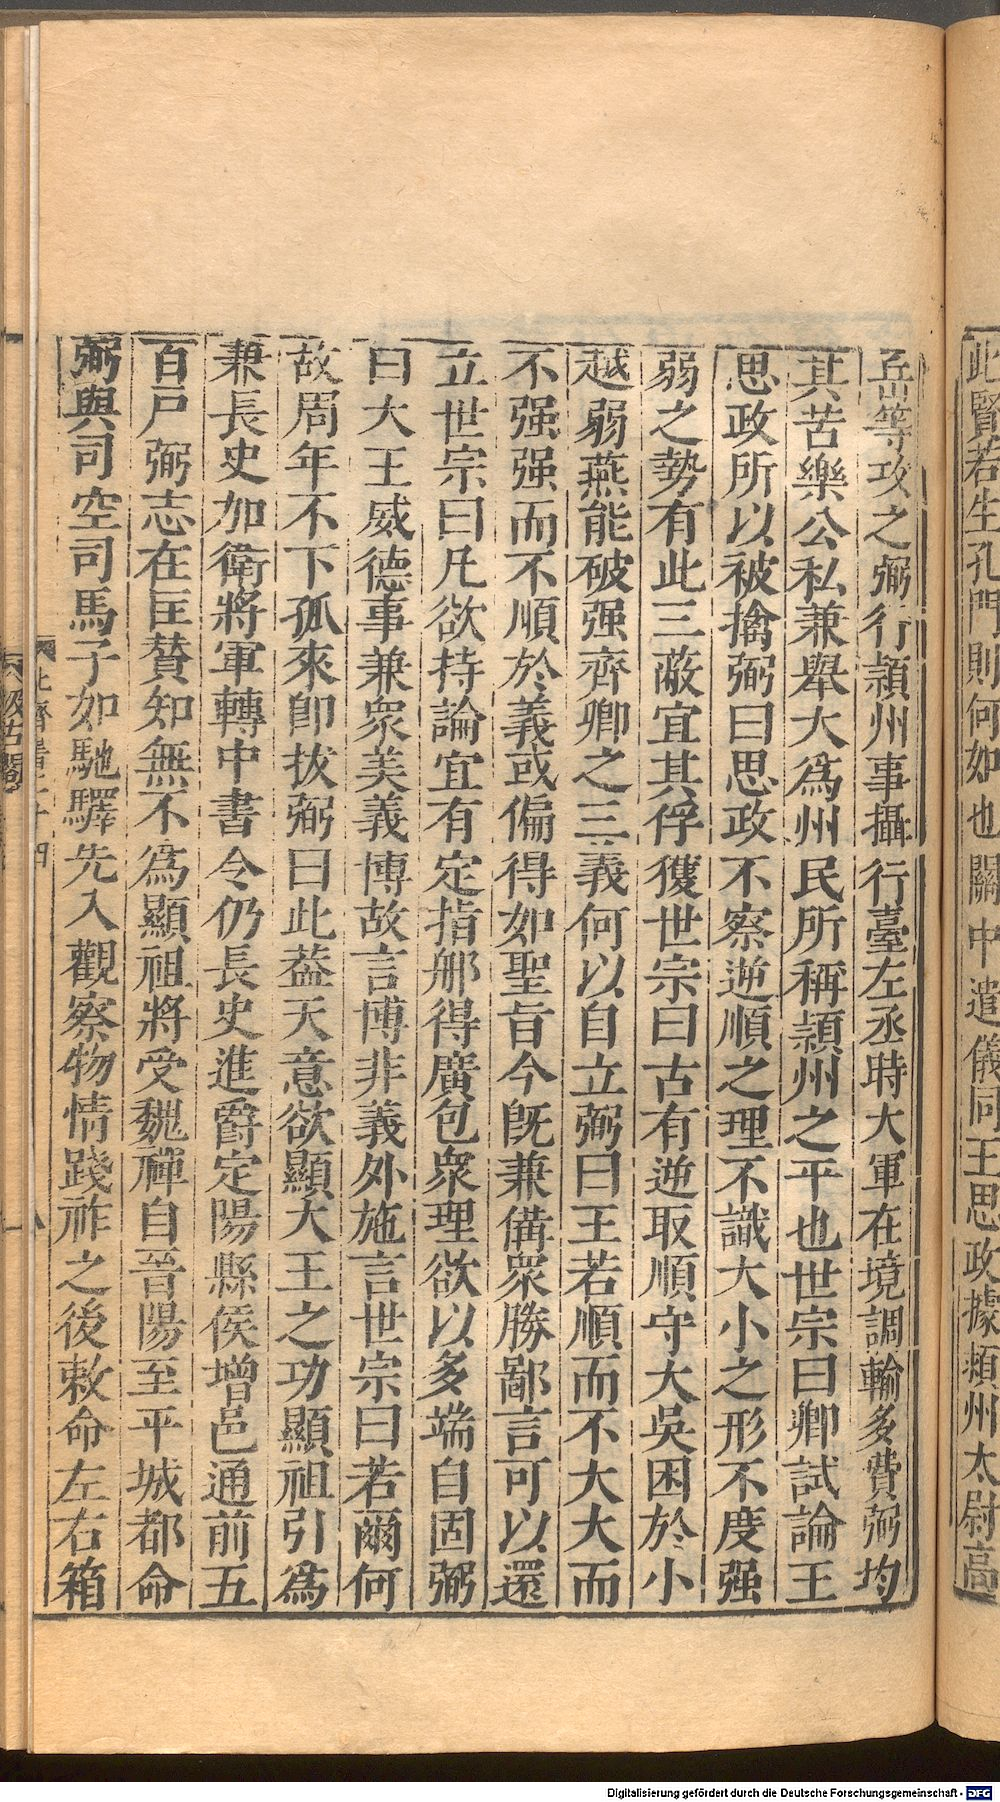 此賢若生孔門則何如也關中遣儀同王思政據潁州太尉高
岳等攻之弼行潁州事攝行臺左丞時大軍在境調輸多費弼均
其苦樂公私兼舉大為州民所稱潁州之平也世宗曰卿試論王
思政所以被擒弼曰思政不察逆順之理不識大小之形不度强
弱之勢有此三蔽宜其俘獲世宗曰古有逆取順守大吳困於小
越弱燕能破强齊卿之三義何以自立弼曰王若順而不大大而
不强强而不順於義或偏得如聖旨今既兼備衆勝鄙言可以還
立世宗曰凡欲持論宜有定指那得廣包衆理欲以多端自固弼
曰大王威德事兼衆美義博故言博非義外施言世宗曰若爾何
故周年不下孤來即拔弼曰此葢天意欲顯大王之功顯祖引為
兼長史加衛將軍轉中書令仍長史進爵定陽縣侯增邑通前五
百戸弼志在匡贊知無不為顯祖將受魏禪自晉陽至平城都命
弼與司空司馬子如馳驛先入觀察物情踐祚之後敕命左右箱
北齊書二十四
汲古閣
Digitalisierung gefördert durch die Deutsche Forschungsgemeinschaft - DFG